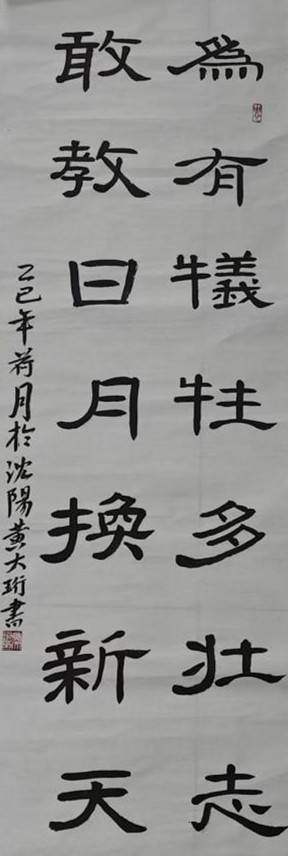 為有犠牲多壯志
敢教日月換新天
乙巳年荷月於沈陽黃大珩書